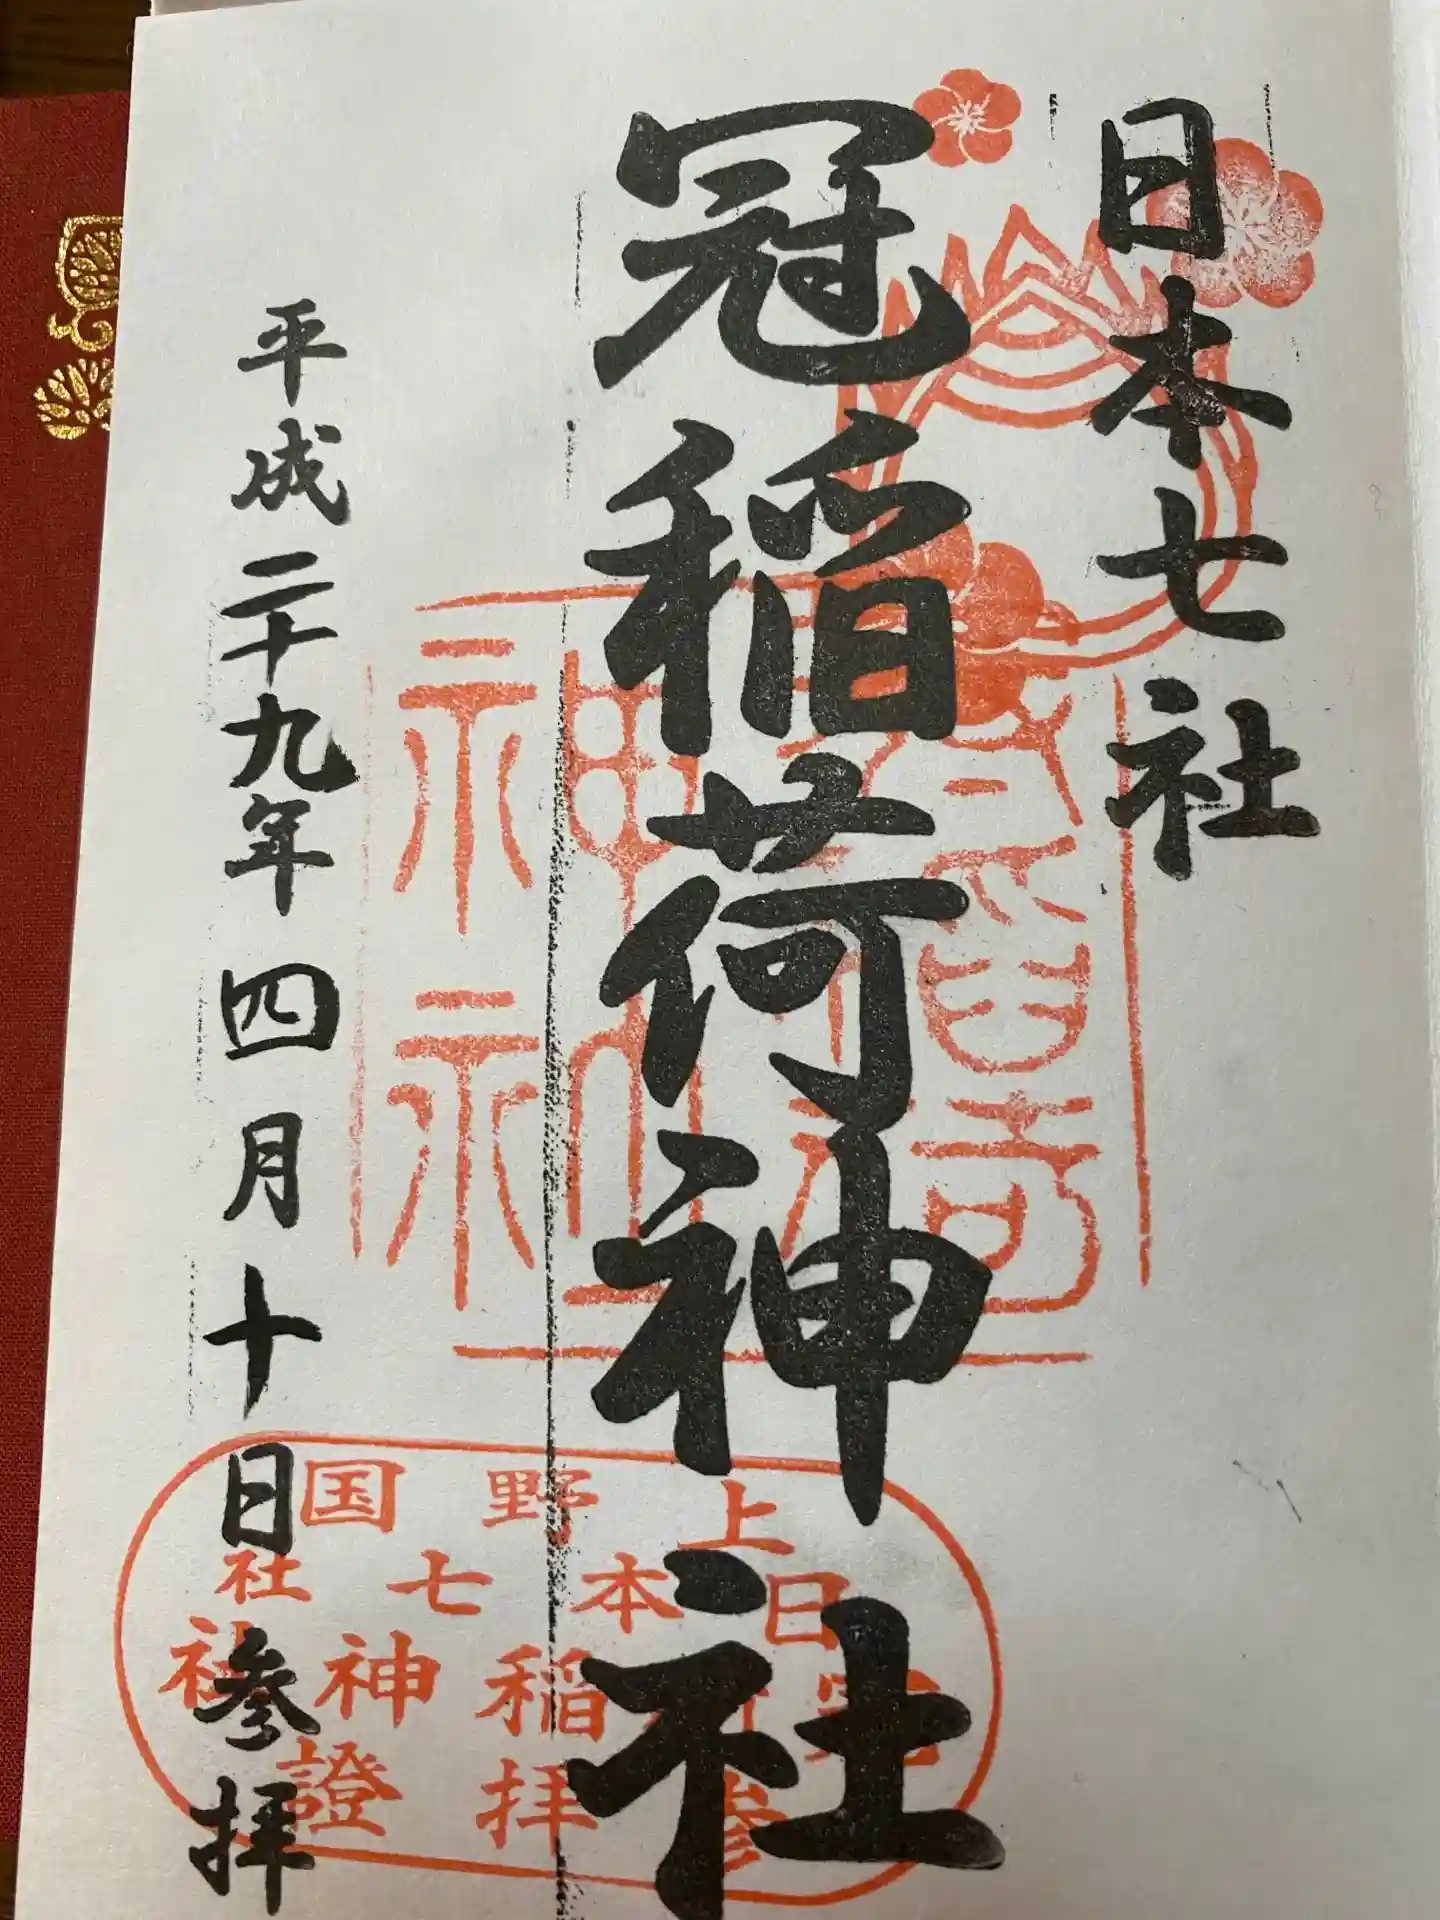 日本七社
冠稲荷神社
平成二十九年四月十日参拝
上野国
日本七社
冠稲荷神社
参拝證